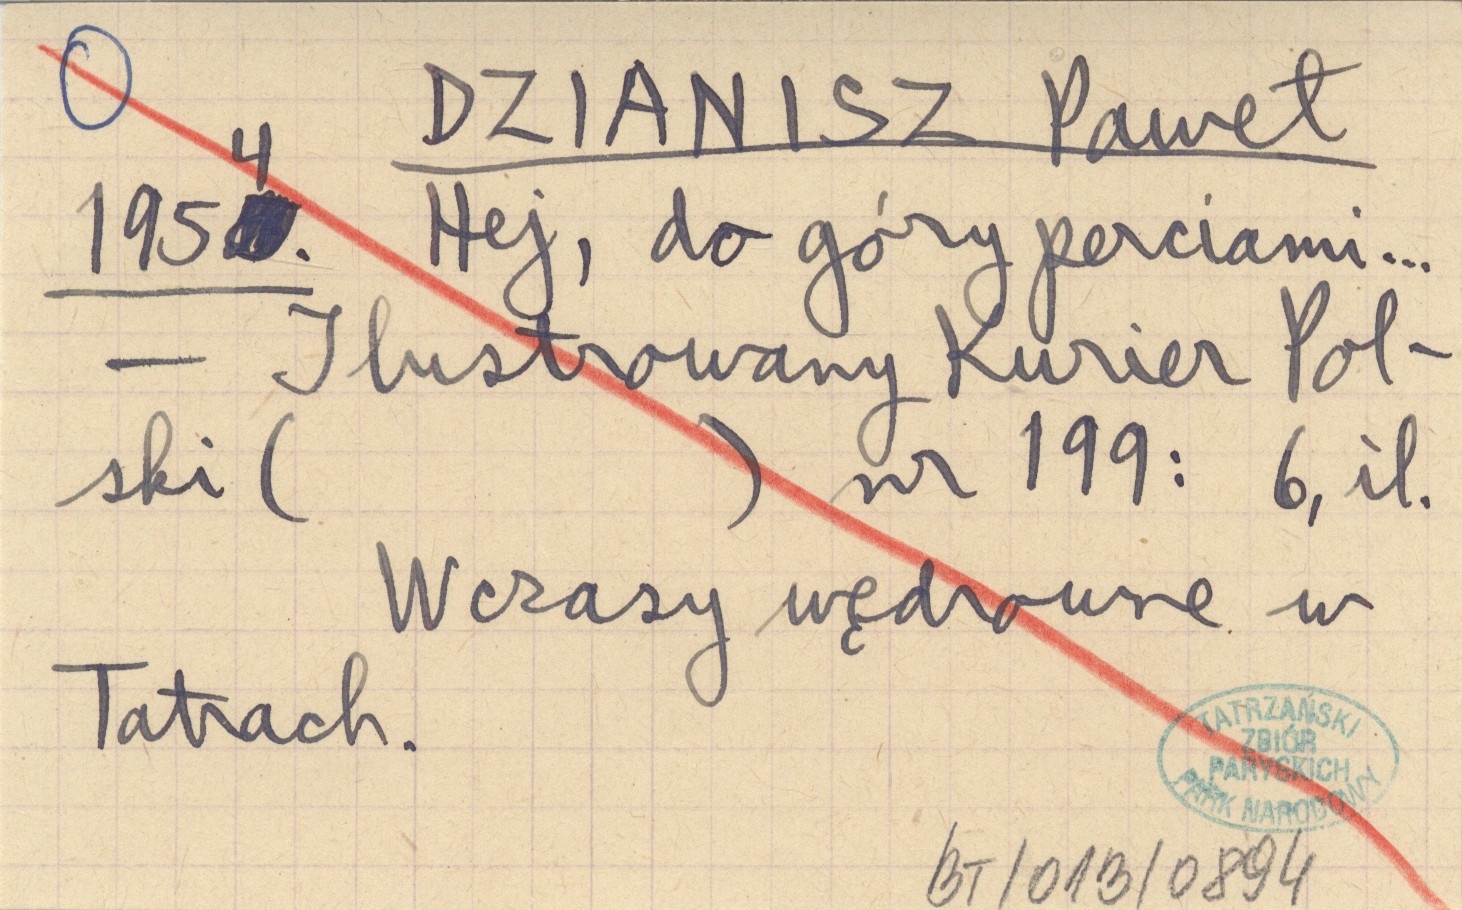 DZIANISZ Paweł
1954. Hej, do góry perciami...
— Ilustrowany Kurier Pol-
ski ( ) nr 199: 6, il.
Wczasy wędrowne w
Tatrach.
TATRZAŃSKI
ZBIÓR
PARYSKICH
PARK NARODOWY
BT/013/0894